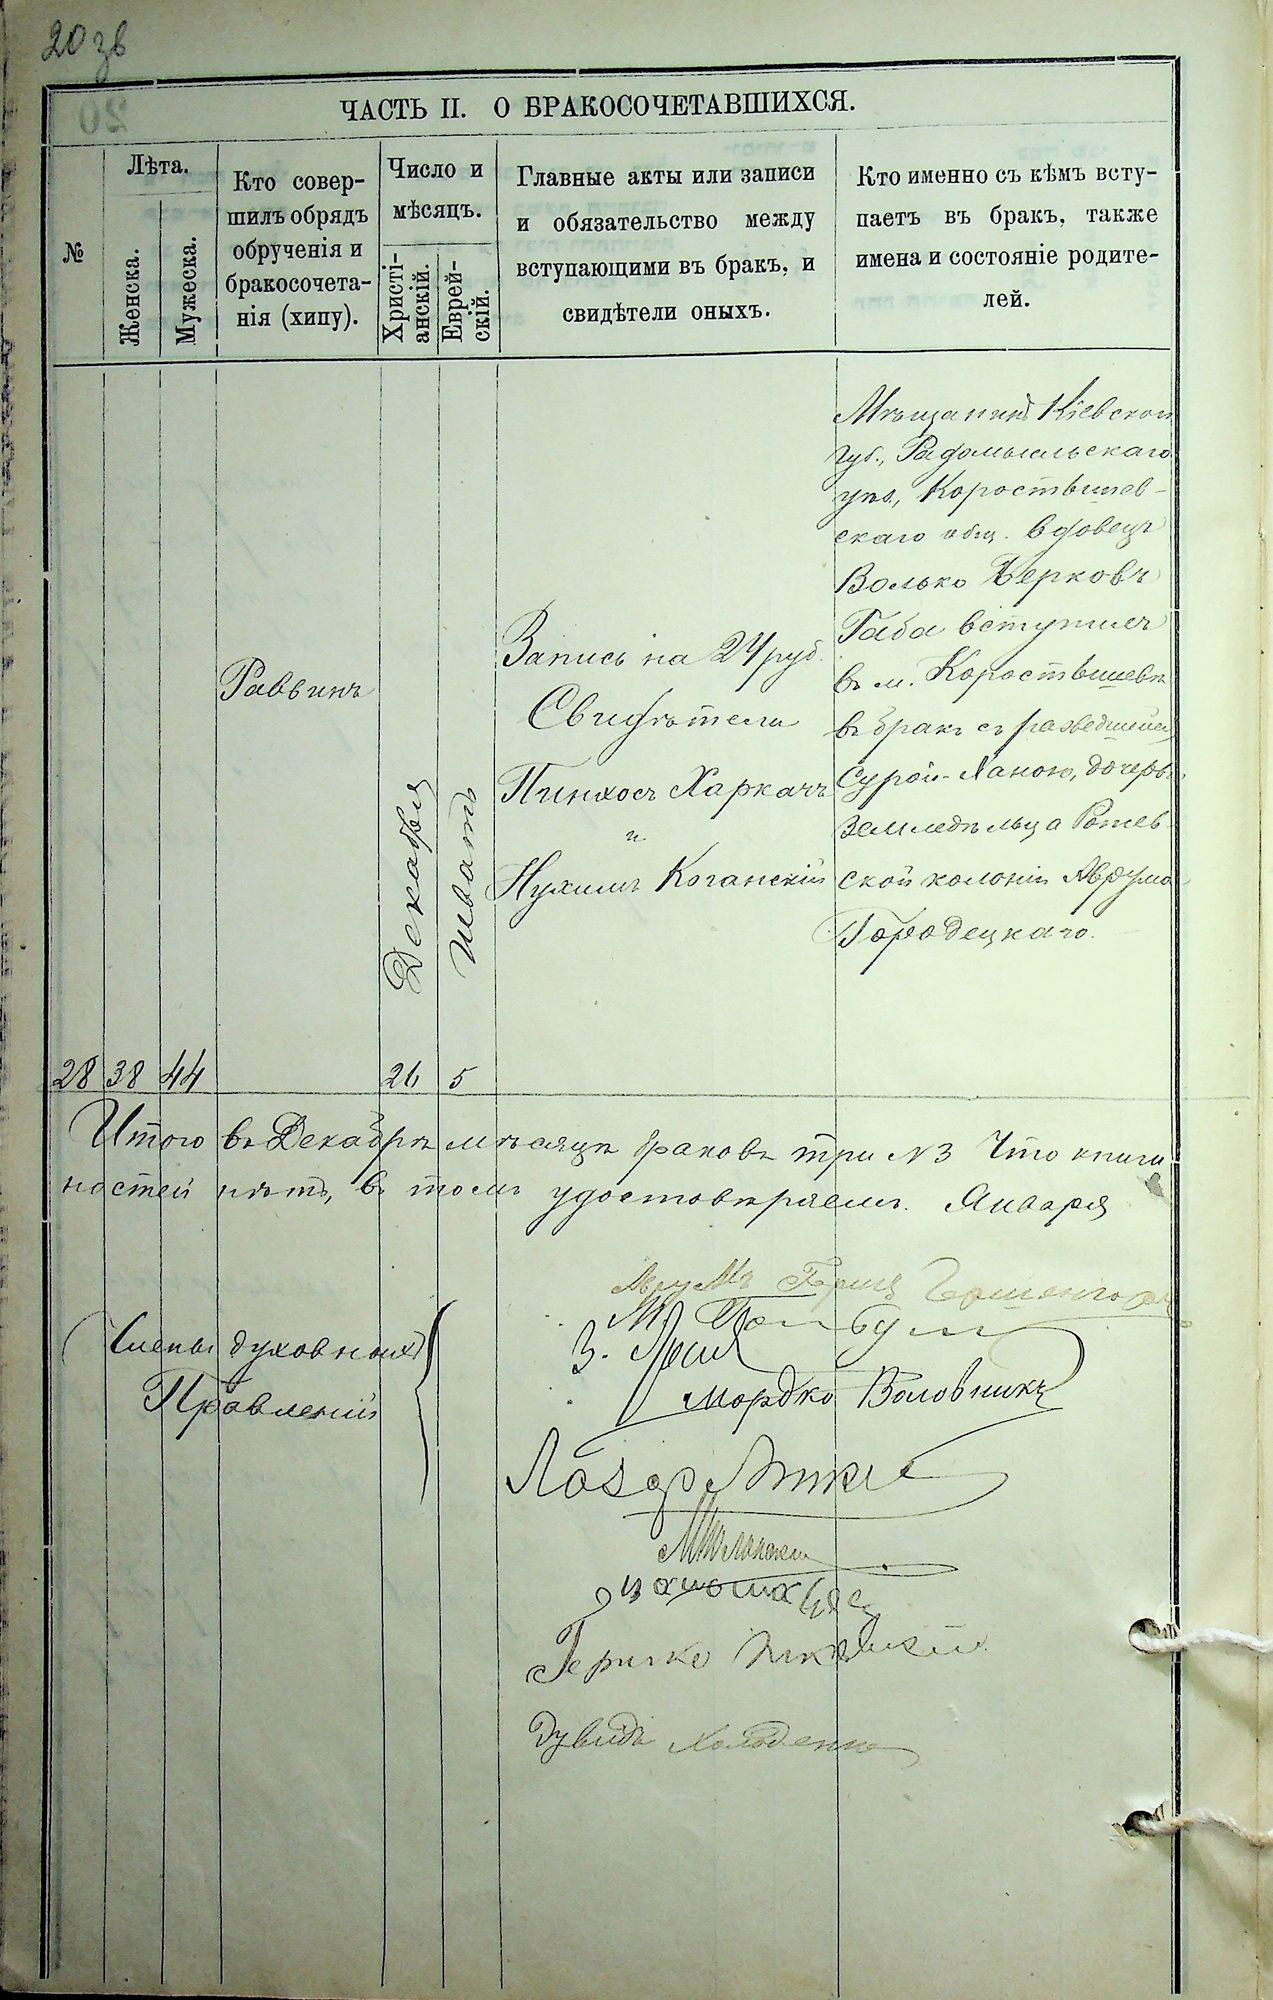 20 зв
ЧАСТЬ II. О БРАКОСОЧЕТАВШИХСЯ.
№
Лѣта.
Женска.
Мужеска.
Кто совер-
шилъ обрядъ
обрученія и
бракосочета-
нія (хипу).
Число и
мѣсяцъ.
Христі-
анскій.
Еврей-
скій.
Главные акты или записи
и обязательство между
вступающими въ бракъ, и
свидѣтели оныхъ.
Кто именно съ кѣмъ всту-
паетъ въ бракъ, также
имена и состояніе родите-
лей.
28
38
44
Раввинъ
Декабря
26
Шватъ
5
Запись на 24 руб.
Свидѣтели
Пинхосъ Харкачъ
и
Нухимъ Коганскій
Мѣщанинъ Кіевской
губ., Радомысльскаго
уѣз., Коростышев-
скаго общ. вдовецъ
Волько Берковъ
Габа вступилъ
въ м. Коростышевѣ
въ бракъ съ разведшейся
Сурой-Ханою, дочерью
земледѣльца
ской колоніи Аврума
Городецкаго.
Итого въ Декабрѣ мѣсяцѣ браковъ три №3 Что
ностей нѣтъ, въ томъ удостовѣряемъ. Января
Члены духовныхъ
Правленій
Мордко Воловникъ
Лазар
Гершко
Дувидъ Холоденко